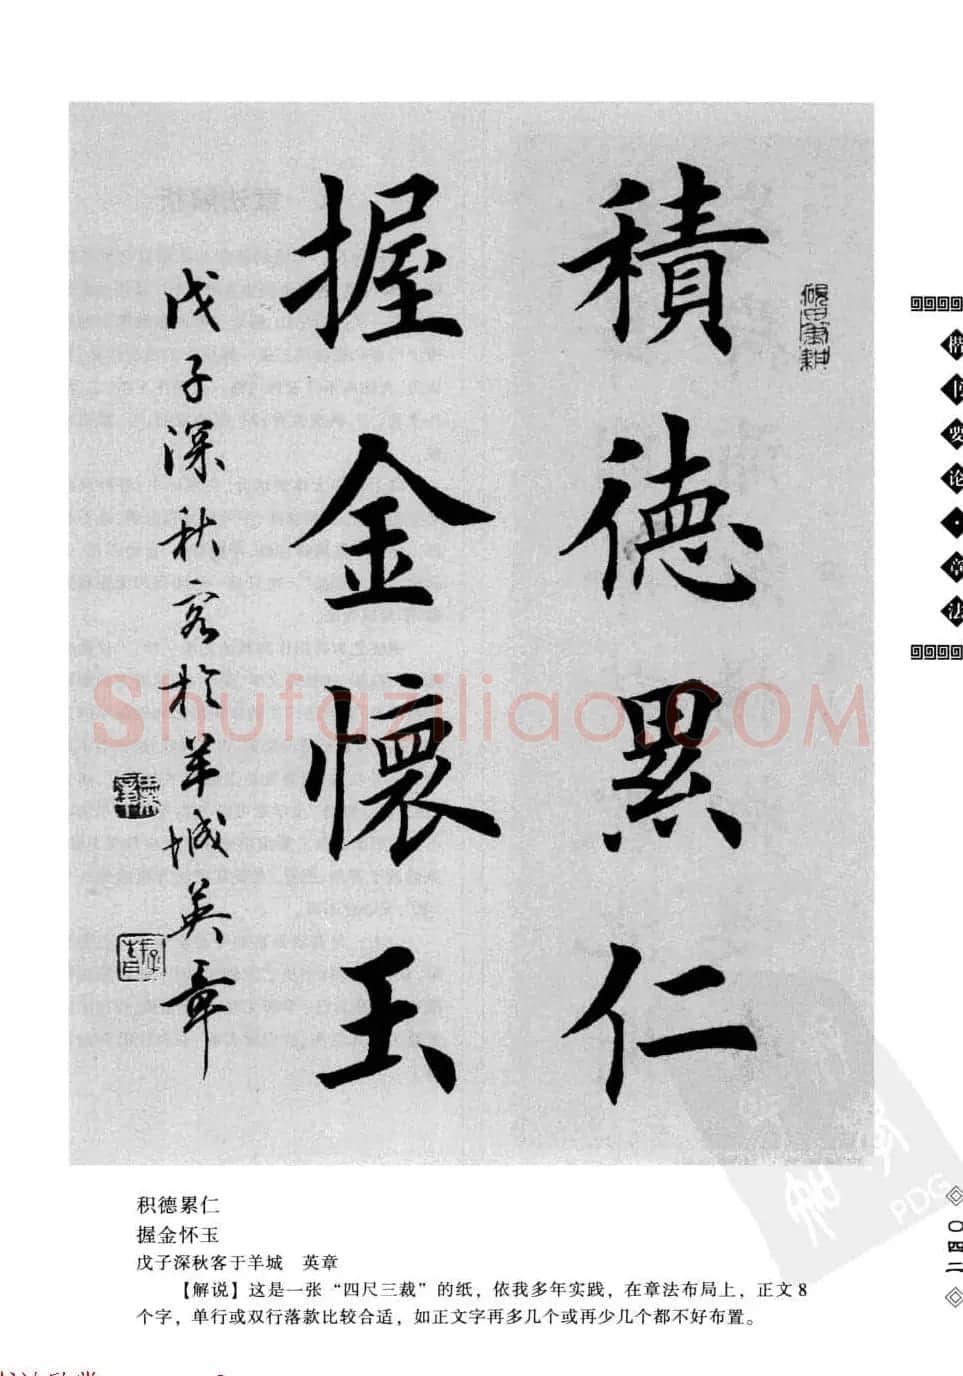 積德累仁
握金懷玉
戊子深秋客於羊城英章
硯田筆耕
楷书要论·章法
Shufaziliao.COM
积德累仁
握金怀玉
戊子深秋客于羊城　英章
【解说】这是一张“四尺三裁”的纸，依我多年实践，在章法布局上，正文8
个字，单行或双行落款比较合适，如正文字再多几个或再少几个都不好布置。
〇四二
PDG